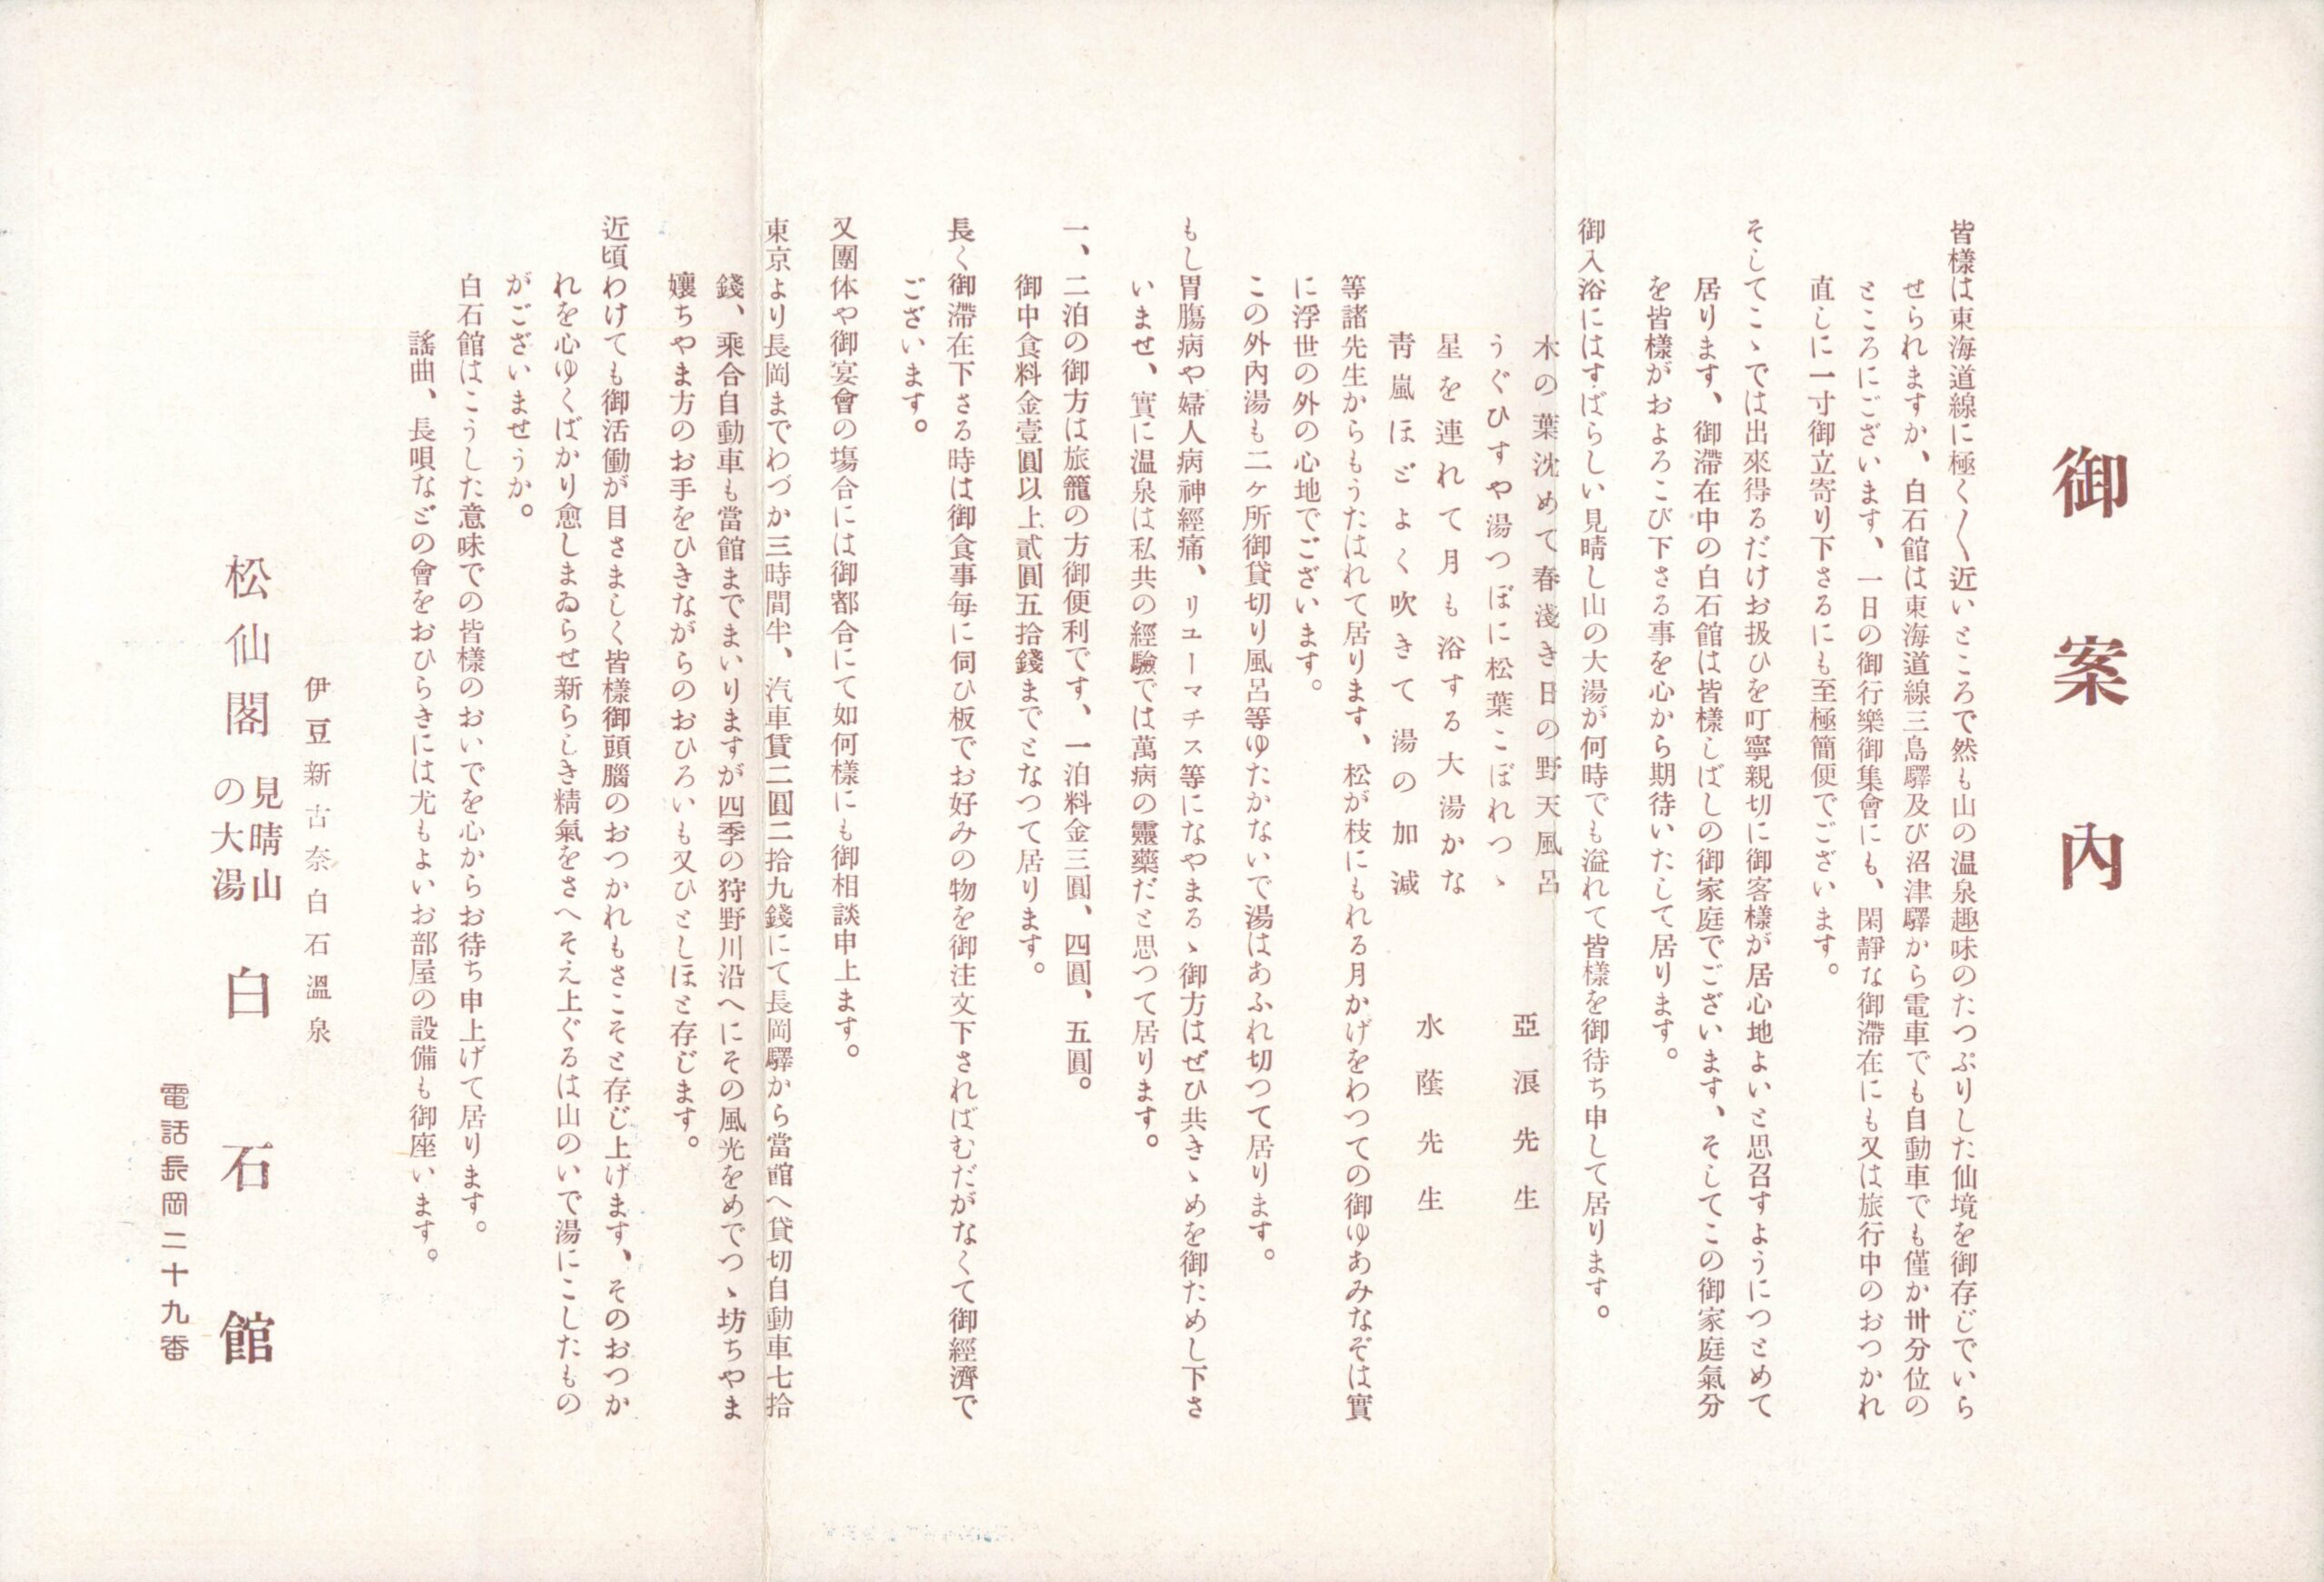 御案内
皆樣は東海道線に極く〱近いところで然も山の温泉趣味のたつぷりした仙境を御存じでいら
せられますか、白石館は東海道線三島驛及び沼津驛から電車でも自動車でも僅か卅分位の
ところにございます、一日の御行樂御集會にも、閑靜な御滯在にも又は旅行中のおつかれ
直しに一寸御立寄り下さるにも至極簡便でございます。
そしてこゝでは出來得るだけお扱ひを叮寧親切に御客樣が居心地よいと思召すようにつとめて
居ります、御滯在中の白石館は皆樣しばしの御家庭でございます、そしてこの御家庭氣分
を皆樣がおよろこび下さる事を心から期待いたして居ります。
御入浴にはすばらしい見晴し山の大湯が何時でも溢れて皆樣を御待ち申して居ります。
木の葉沈めて春淺き日の野天風呂
うぐひすや湯つぼに松葉こぼれつゝ
亞浪先生
星を連れて月も浴する大湯かな
靑嵐ほどよく吹きて湯の加減
水蔭先生
等諸先生からもうたはれて居ります、松が枝にもれる月かげをわつての御ゆあみなぞは實
に浮世の外の心地でございます。
この外內湯も二ヶ所御貸切り風呂等ゆたかないで湯はあふれ切つて居ります。
もし胃腸病や婦人病神經痛、リユーマチス等になやまるゝ御方はぜひ共きゝめを御ためし下さ
いませ、實に温泉は私共の經驗では萬病の靈藥だと思つて居ります。
一、二泊の御方は旅籠の方御便利です、一泊料金三圓、四圓、五圓。
御中食料金壹圓以上貳圓五拾錢までとなつて居ります。
長く御滯在下さる時は御食事每に伺ひ板でお好みの物を御注文下さればむだがなくて御經濟で
ございます。
又團体や御宴會の塲合には御都合にて如何樣にも御相談申上ます。
東京より長岡までわづか三時間半、汽車賃二圓二拾九錢にて長岡驛から當館へ貸切自動車七拾
錢、乘合自動車も當館までまいりますが四季の狩野川沿へにその風光をめでつゝ坊ちやま
孃ちやま方のお手をひきながらのおひろいも又ひとしほと存じます。
近頃わけても御活働が目さましく皆樣御頭腦のおつかれもさこそと存じ上げます、そのおつか
れを心ゆくばかり愈しまゐらせ新らしき精氣をさへそえ上ぐるは山のいで湯にこしたもの
がございませうか。
白石館はこうした意味での皆樣のおいでを心からお待ち申上げて居ります。
謠曲、長唄などの會をおひらきには尤もよいお部屋の設備も御座います。
伊豆新古奈白石溫泉
松仙閣 見晴山の大湯 白石館
電話長岡二十九番